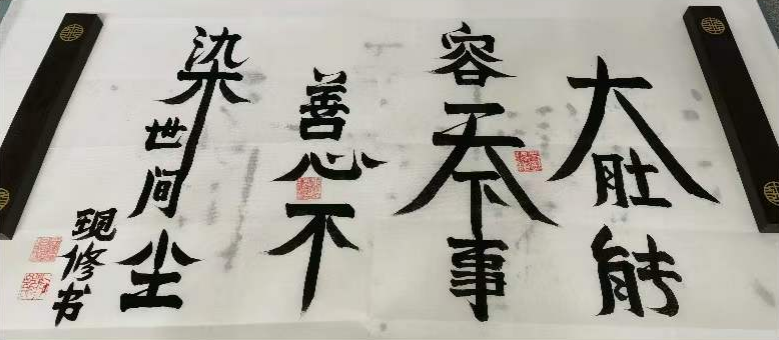 大肚能
容天下事
善心不
染世间尘
现修书